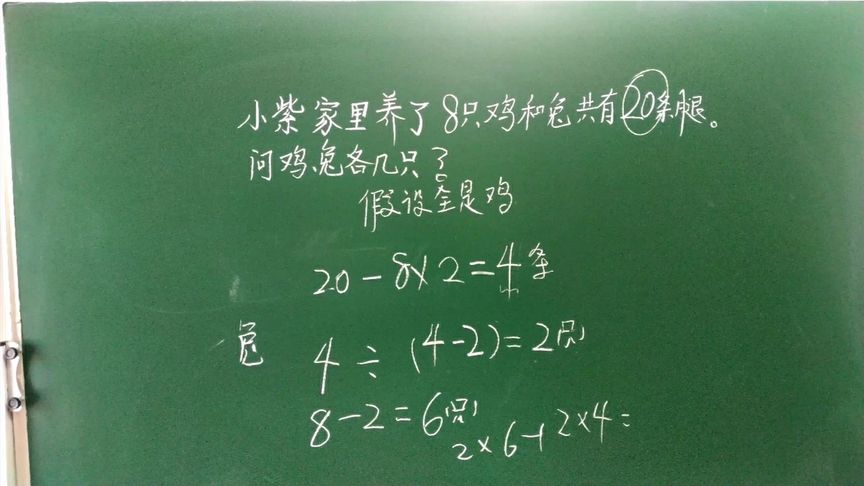 小紫家里养了8只鸡和兔共有20条腿。
问鸡、兔各几只?
假设全是鸡
20-8×2=4条
兔 4÷(4-2)=2(只)
8-2=6(只)
2×6+2×4=